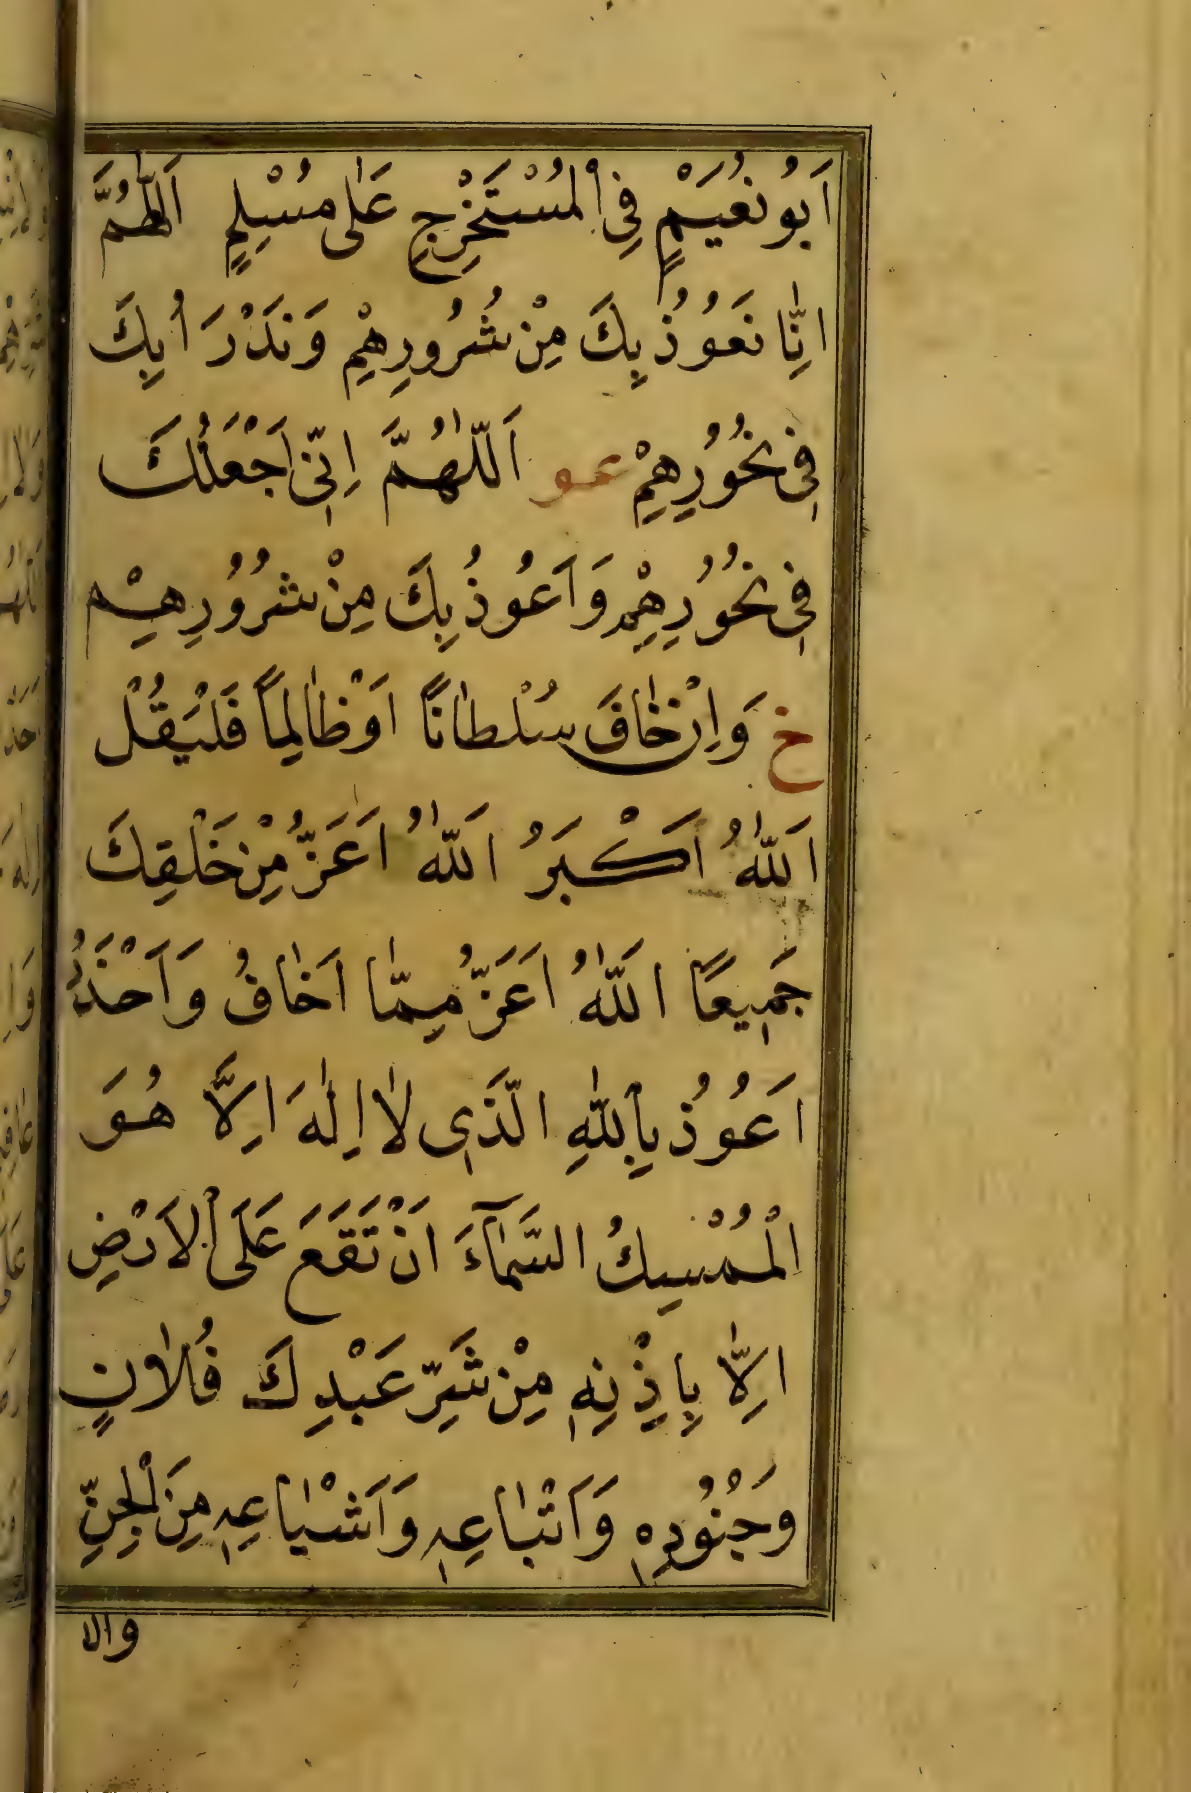 اَبُو نُعَيْمٍ فِى الْمُسْتَخْرَجِ عَلٰى مُسْلِمٍ اَللّٰهُمَّ
اِنَّا نَعُوذُ بِكَ مِنْ شُرُورِهِمْ وَنَدْرَاُ بِكَ
فِى نُحُورِهِمْ عو اَللّٰهُمَّ اِنِّى اَجْعَلُكَ
فِى نُحُورِهِمْ وَاَعُوذُ بِكَ مِنْ شُرُورِهِمْ
خ وَاِنْ خَافَ سُلْطَانًا اَوْ ظَالِمًا فَلْيَقُلْ
اَللّٰهُ اَكْبَرُ اَللّٰهُ اَعَزُّ مِنْ خَلْقِكَ
جَمِيعًا اَللّٰهُ اَعَزُّ مِمَّا اَخَافُ وَاَحْذَرُ
اَعُوذُ بِاللّٰهِ الَّذِى لَا اِلٰهَ اِلَّا هُوَ
الْمُمْسِكُ السَّمَآءَ اَنْ تَقَعَ عَلَى الْاَرْضِ
اِلَّا بِاِذْنِهِ مِنْ شَرِّ عَبْدِكَ فُلَانٍ
وَجُنُودِهِ وَاَتْبَاعِهِ وَاَشْيَاعِهِ مِنَ الْجِنِّ
والا